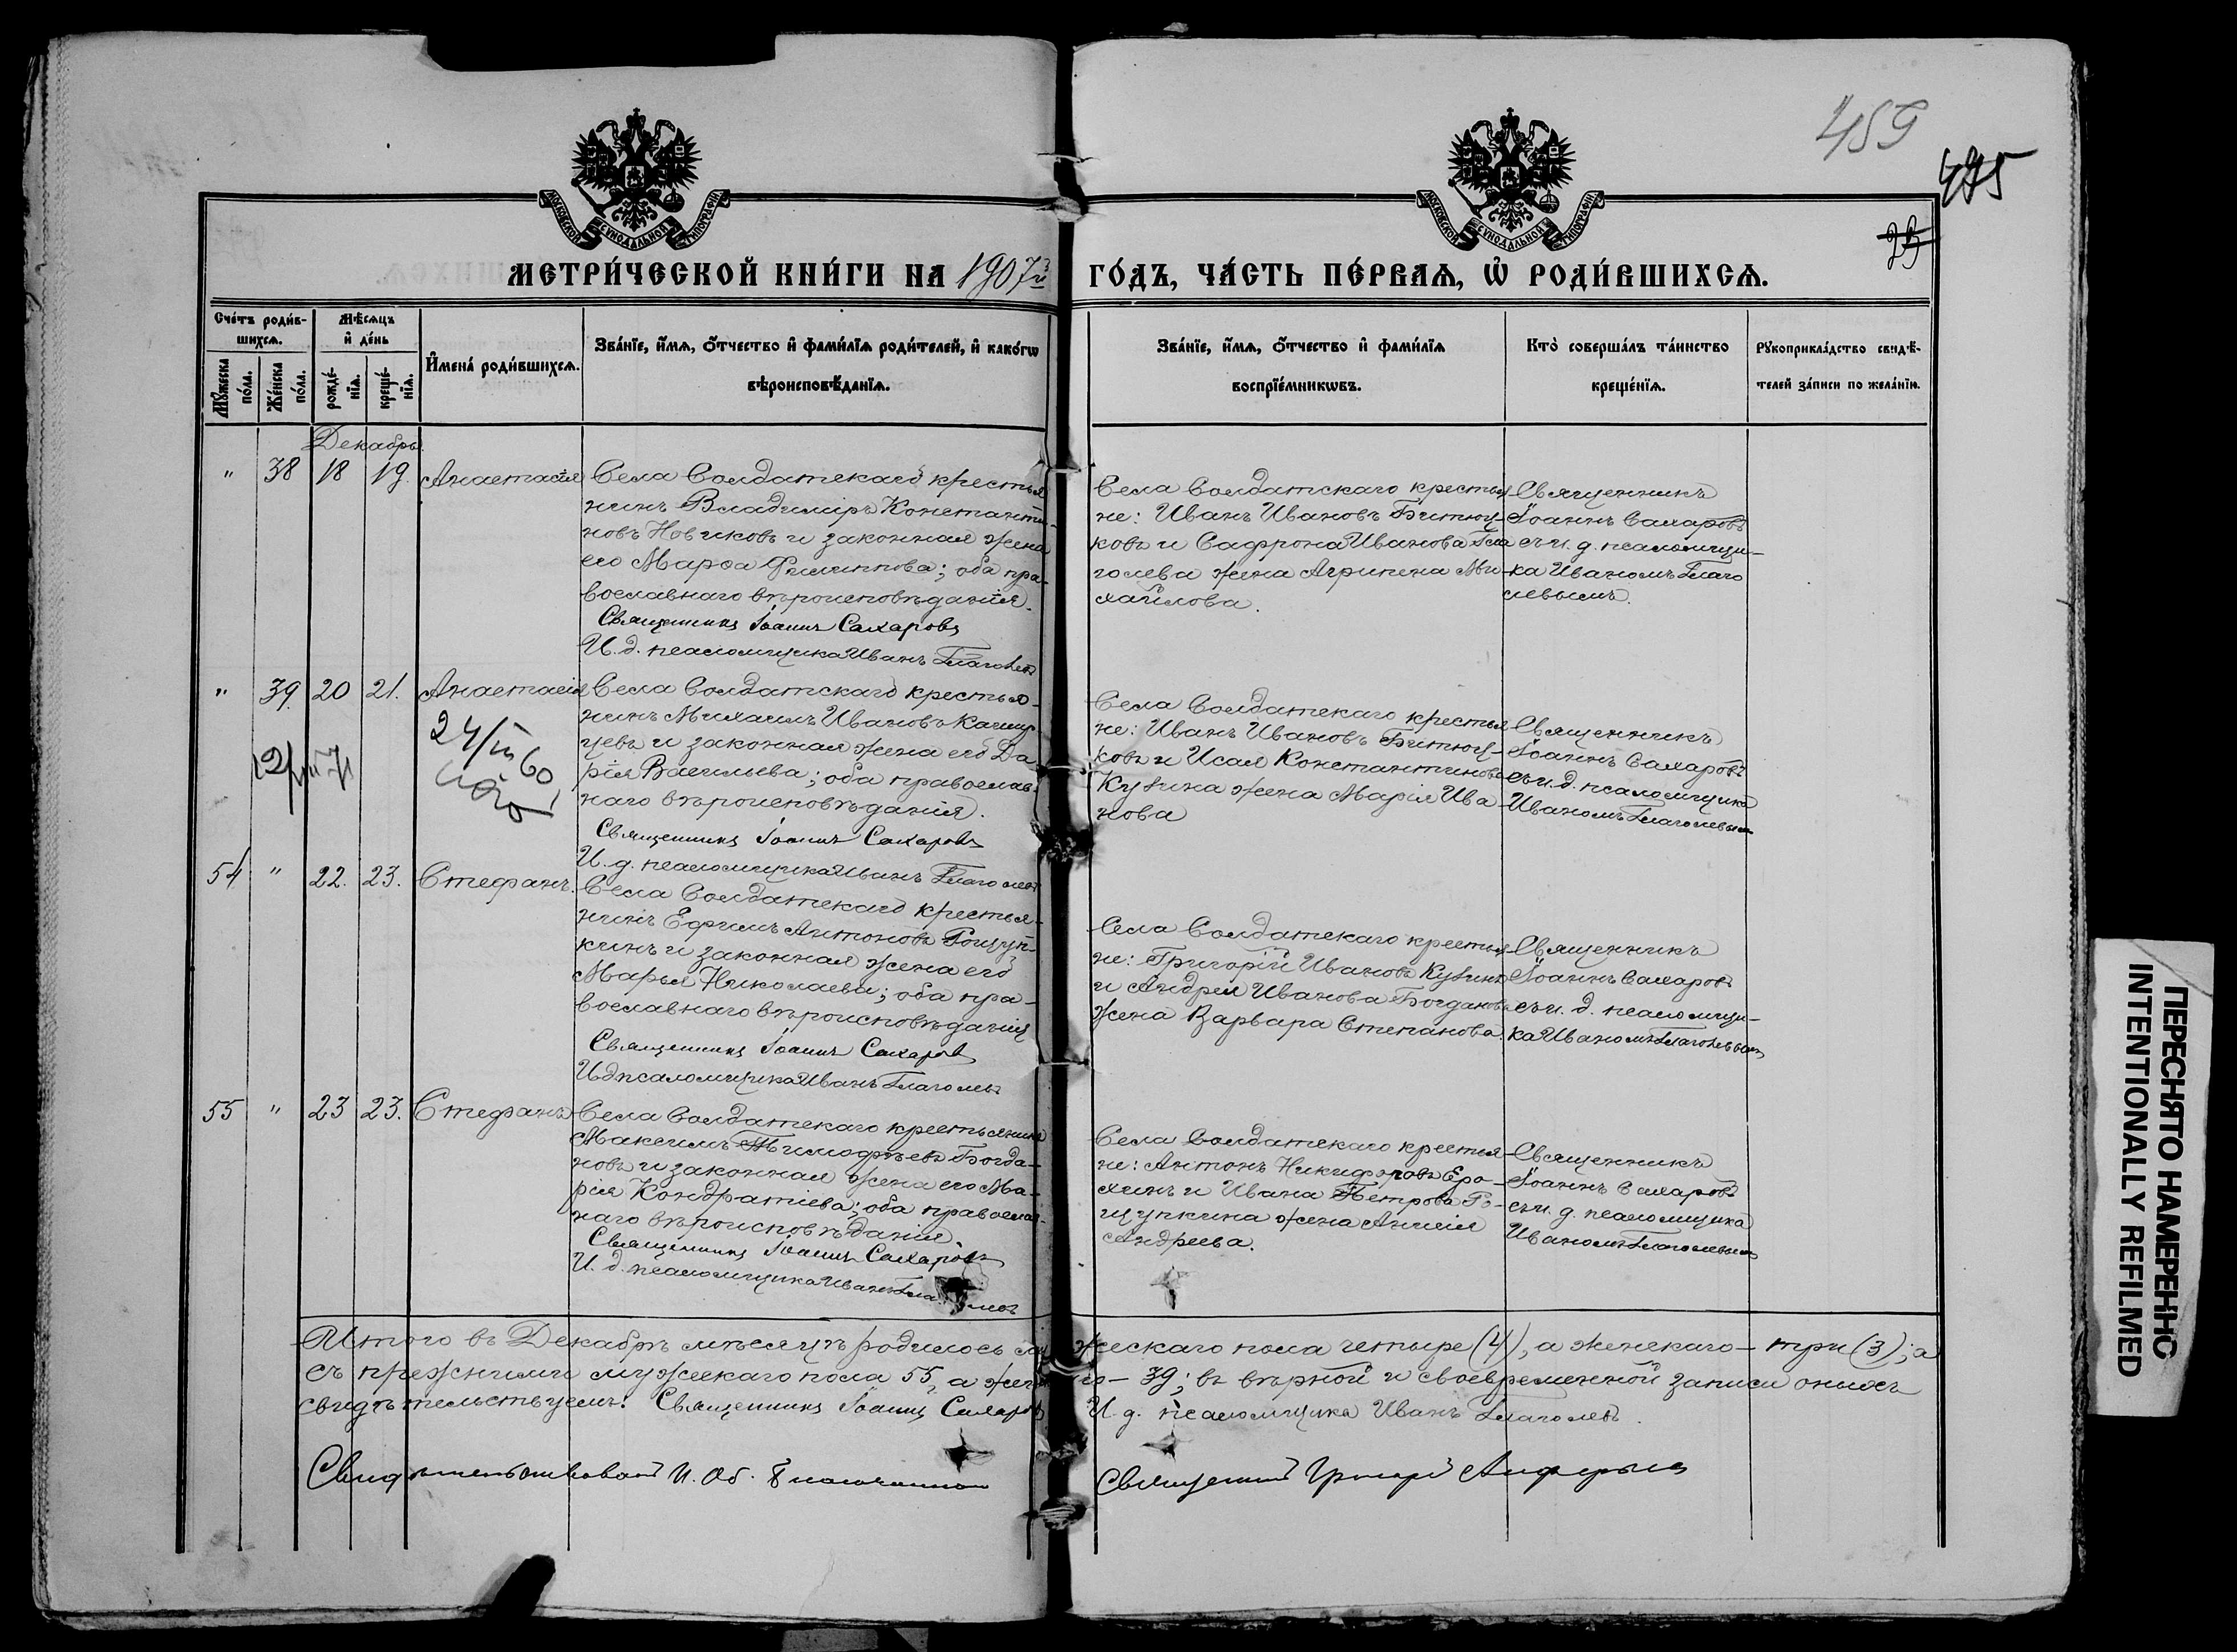 459
475
МОСКОВСКОЙ СѴНОДАЛЬНОЙ ТИПОГРАФІИ
МОСКОВСКОЙ СѴНОДАЛЬНОЙ ТИПОГРАФІИ
МЕТРИ́ЧЕСКОЙ КНИ́ГИ НА 1907й ГО́ДЪ, ЧА́СТЬ ПЕ́РВАѦ, Ѡ҆ РОДИ́ВШИХСѦ.
Сче́тъ роди́в-
шихсѧ.
Мѣ́сѧцъ
и҆ де́нь
Мꙋ́жеска
по́ла.
Же́нска
по́ла.
рожде́-
нїѧ.
креще́-
нїѧ.
И҆мена̀ роди́вшихсѧ.
Зва́нїе, и҆́мѧ, ѻ҆́тчество и҆ фами́лїѧ роди́телей, и҆ како́гѡ
вѣроисповѣ́данїѧ.
Зва́нїе, и҆́мѧ, ѻ҆́тчество и҆ фами́лїѧ
воспрїе́мникѡвъ.
Кто̀ соверша́лъ та́инство
креще́нїѧ.
Рꙋкоприкла́дство свидѣ́-
телей за́писи по жела́нїю.
Декабрь
" 38 18 19. Анастасія
Села Солдатскаго крестья
нинъ Владиміръ Константи-
новъ Новиковъ и законная жена
его Марѳа Филиппова; оба пра-
вославнаго вѣроисповѣданія.
Священникъ Іоаннъ Сахаровъ
И. д. псаломщика Иванъ Глаголевъ
Села Солдатскаго крестья
не: Иванъ Ивановъ Битюц-
ковъ и Сафрона Иванова Гла
голева жена Агрипена Ми-
хайлова.
Священникъ
Іоаннъ Сахаровъ
съ и. д. псаломщи-
ка Иваномъ Глаго
левымъ.
" 39. 20 21. Анастасія
24/III 60
Села Солдатскаго крестья-
нинъ Михаилъ Ивановъ Кашир
цевъ и законная жена его Да
рія Васильева; оба православ-
наго вѣроисповѣданія.
Священникъ Іоаннъ Сахаровъ
И. д. псаломщика Иванъ Глаголевъ
Села Солдатскаго крестья
не: Иванъ Ивановъ Битюц-
ковъ и Исая Константинова
Кузина жена Марія Ива
нова
Священникъ
Іоаннъ Сахаровъ
съ и. д. псаломщика
Иваномъ Глаголевымъ
54 " 22. 23. Стефанъ.
Села Солдатскаго крестья-
нинъ Ефимъ Антоновъ Рощуп-
кинъ и законная жена его
Марья Николаева; оба пра-
вославнаго вѣроисповѣданія
Священникъ Іоаннъ Сахаровъ
И д псаломщика Иванъ Глаголевъ
Села Солдатскаго крестья
не: Григорій Ивановъ Кузинъ
и Андрея Иванова Богданова
жена Варвара Степанова.
Священникъ
Іоаннъ Сахаровъ
съ и. д. псаломщи-
ка Иваномъ Глаголевымъ
55 " 23 23. Стефанъ
Села Солдатскаго крестьянинъ
Максимъ Тимофѣевъ Богда-
новъ и законная жена его Ма-
рія Кондратіева; оба православ-
наго вѣроисповѣданія.
Священникъ Іоаннъ Сахаровъ
И. д. псаломщика Иванъ Глаголевъ
Села Солдатскаго крестья-
не: Антонъ Никифоровъ Еро-
хинъ и Ивана Петрова Ро-
щупкина жена Анисія
Андреева.
Священникъ
Іоаннъ Сахаровъ
съ и. д. псаломщика
Иваномъ Глаголевымъ
Итого въ Декабрѣ мѣсяцѣ родилось мужескаго пола четыре (4), а женскаго – три (3); а
съ прежними мужескаго пола 55, а женскаго – 39; въ вѣрной и своевременной записи оныхъ
свидѣтельствуемъ: Священникъ Іоаннъ Сахаровъ И. д. псаломщика Иванъ Глаголевъ.
Свидѣтельствовалъ И. Об. Благочиннаго Священникъ Григорій
ПЕРЕСНЯТО НАМЕРЕННО
INTENTIONALLY REFILMED